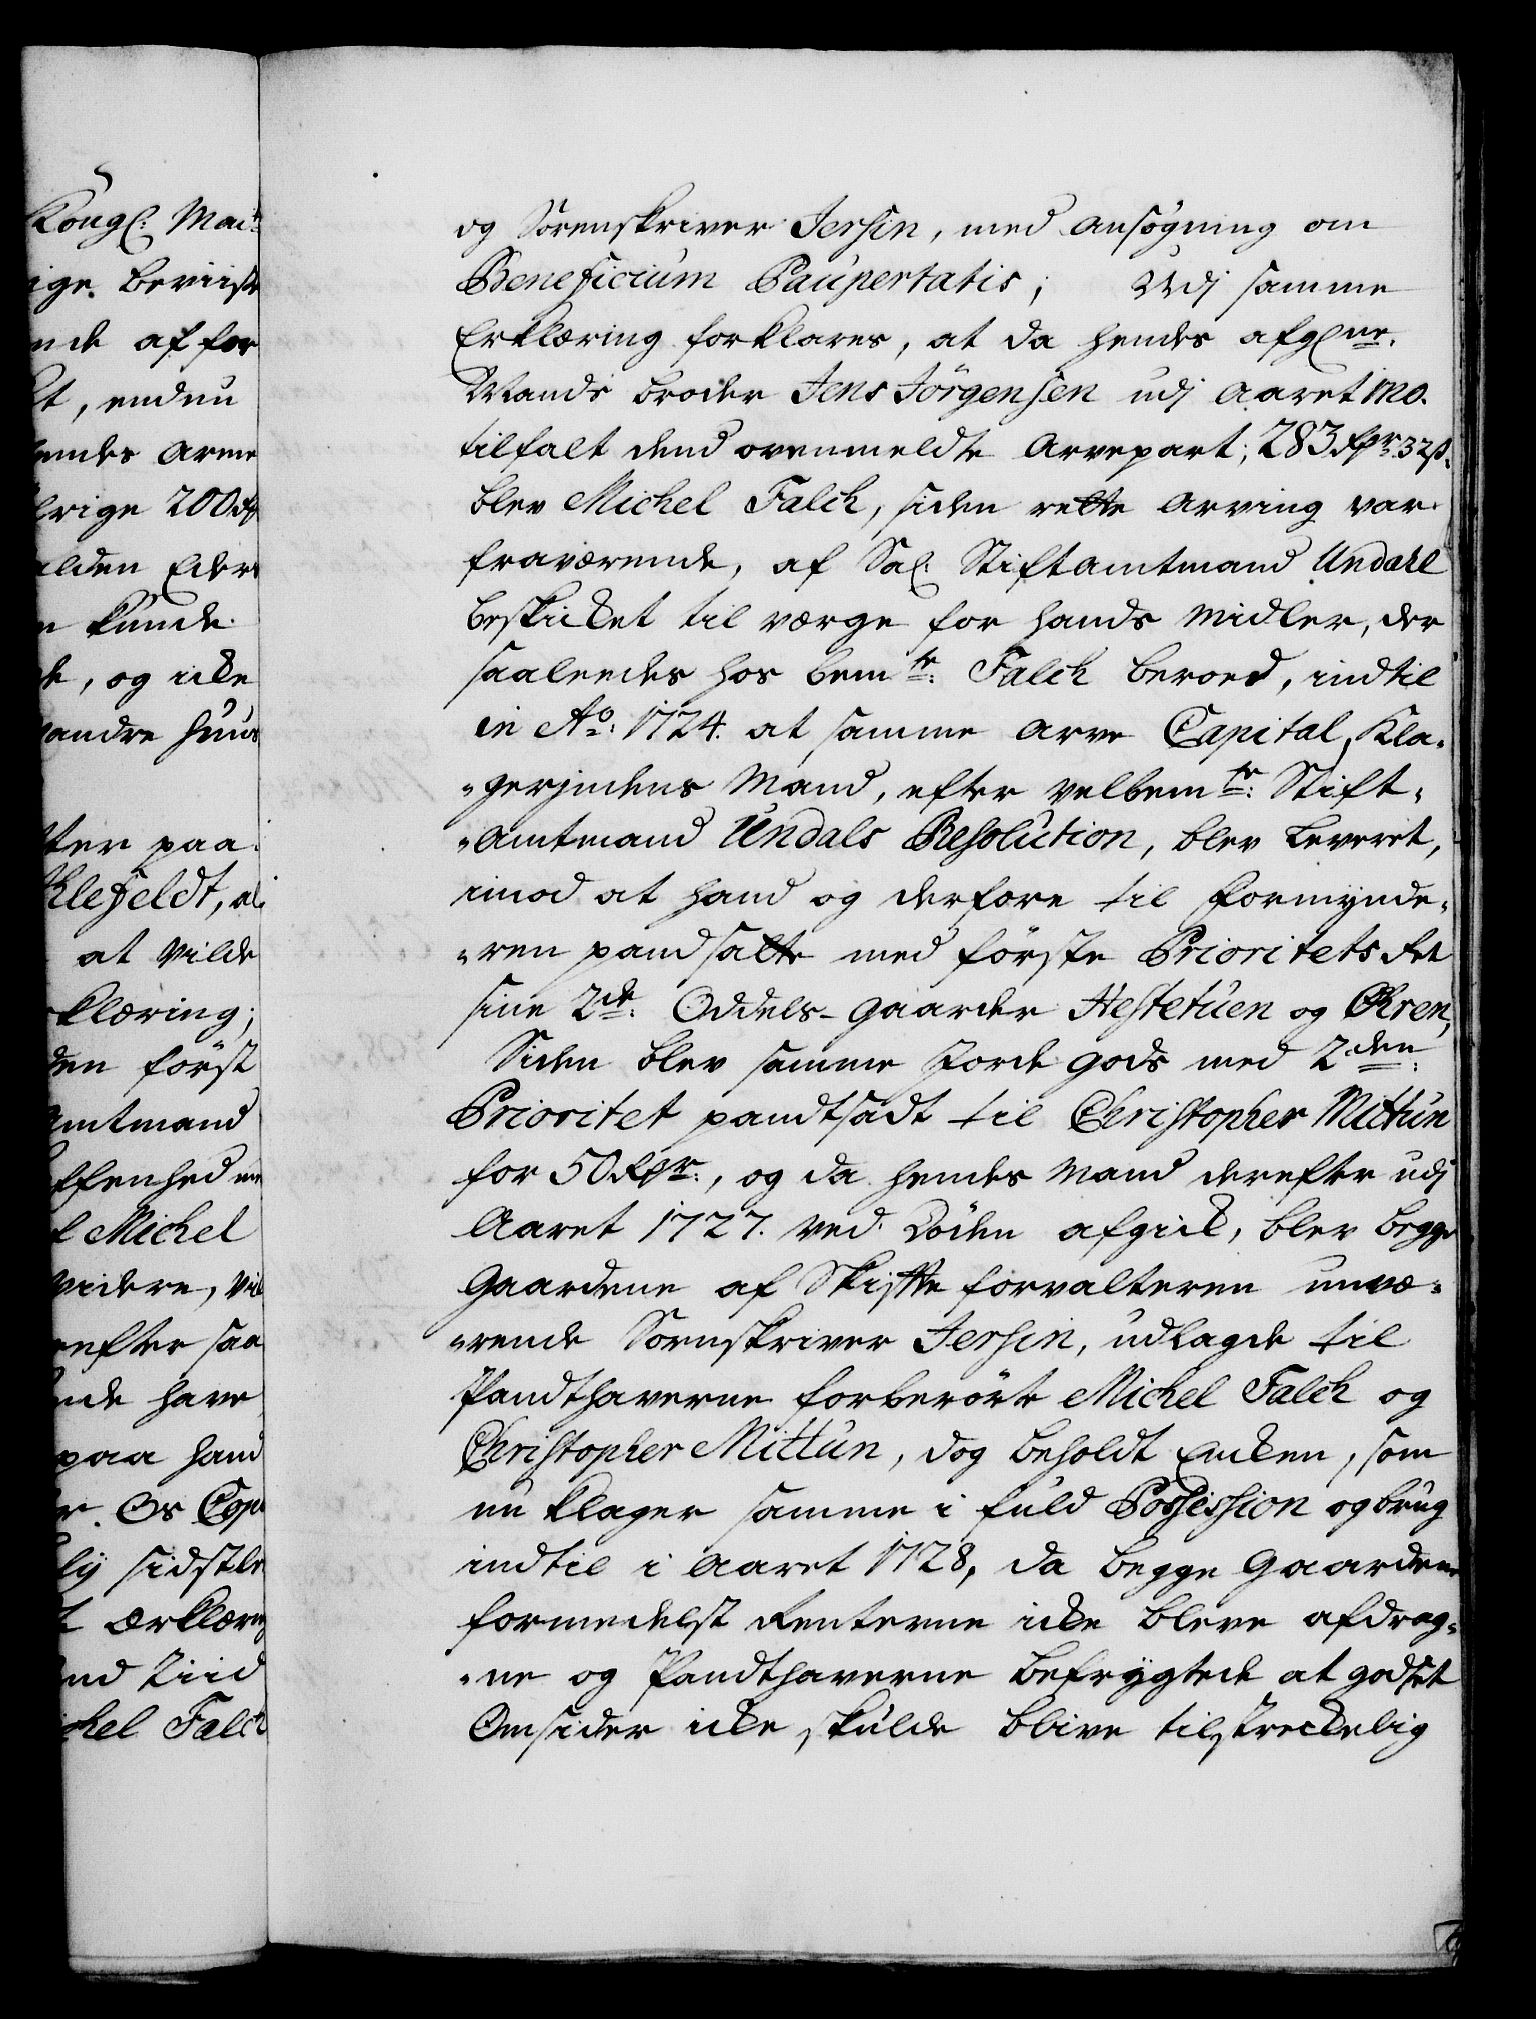 Kongl: Mai:ts
ige beviist
nde af for
t, endnu
hendes arme
brige 200 rd
alden Eders
n kunde
de, og icke
andre Huus
tter paa
Klefeldt, al,
at vilde
klæring;
den først
Amtmand
ffenhed
l Michel
videre, vil
nefter saa
nde have
paa hand
r. Os Cop
ly sidstle
t ærklæring
nd Tiid
chel Falck
og Sorenskriver Jersin, med ansøgning om
Beneficium Paupertatis; Udj samme
Erklæring forklares, at da hendes afgl:ne
Mands broder Jens Jörgensen udj aaret 1720.
tilfalt dend ovenmeldte Arvepart, 283 Rdr 32 s.
blev Michel Falck, siden rette Arving var
fraværende, af Sal: Stiftamtmand Undall
beskicket til værge for hands midler, der
saaleedes hos bem:te Falck beroed, indtil
in A:o 1724. at samme Arve Capital, Kla-
-gerjndens Mand, efter velbem:te Stift-
-Amtmand Undals Resolution, blev leveret,
imod at hand og derfore til formynde-
-ren pandsatte med förste Prioritets Ret
sine 2:de Oddels-gaarder Hestetuen og Øren,
Siden blev samme Jorde gods med 2:den
Prioritet pandtsadt til Christopher Mittun
for 50 Rdr:, og da hendes Mand derefter udj
Aaret 1727. ved Döden afgick, blev begge
Gaardene af Skifte forvalteren unvæ-
-rende Sornskriver Jersin, udlagde til
Pandthaverne forberörte Michel Falck og
Christopher Mittun, dog beholdt Encken, som
nu klager samme i fuld Possession og brug
indtil i Aaret 1728, da begge Gaardene
formedelst Renterne icke bleve afdrag-
-ne og Pandthaverne befrygtede at godset
Omsider icke skulde blive tilstreckelig